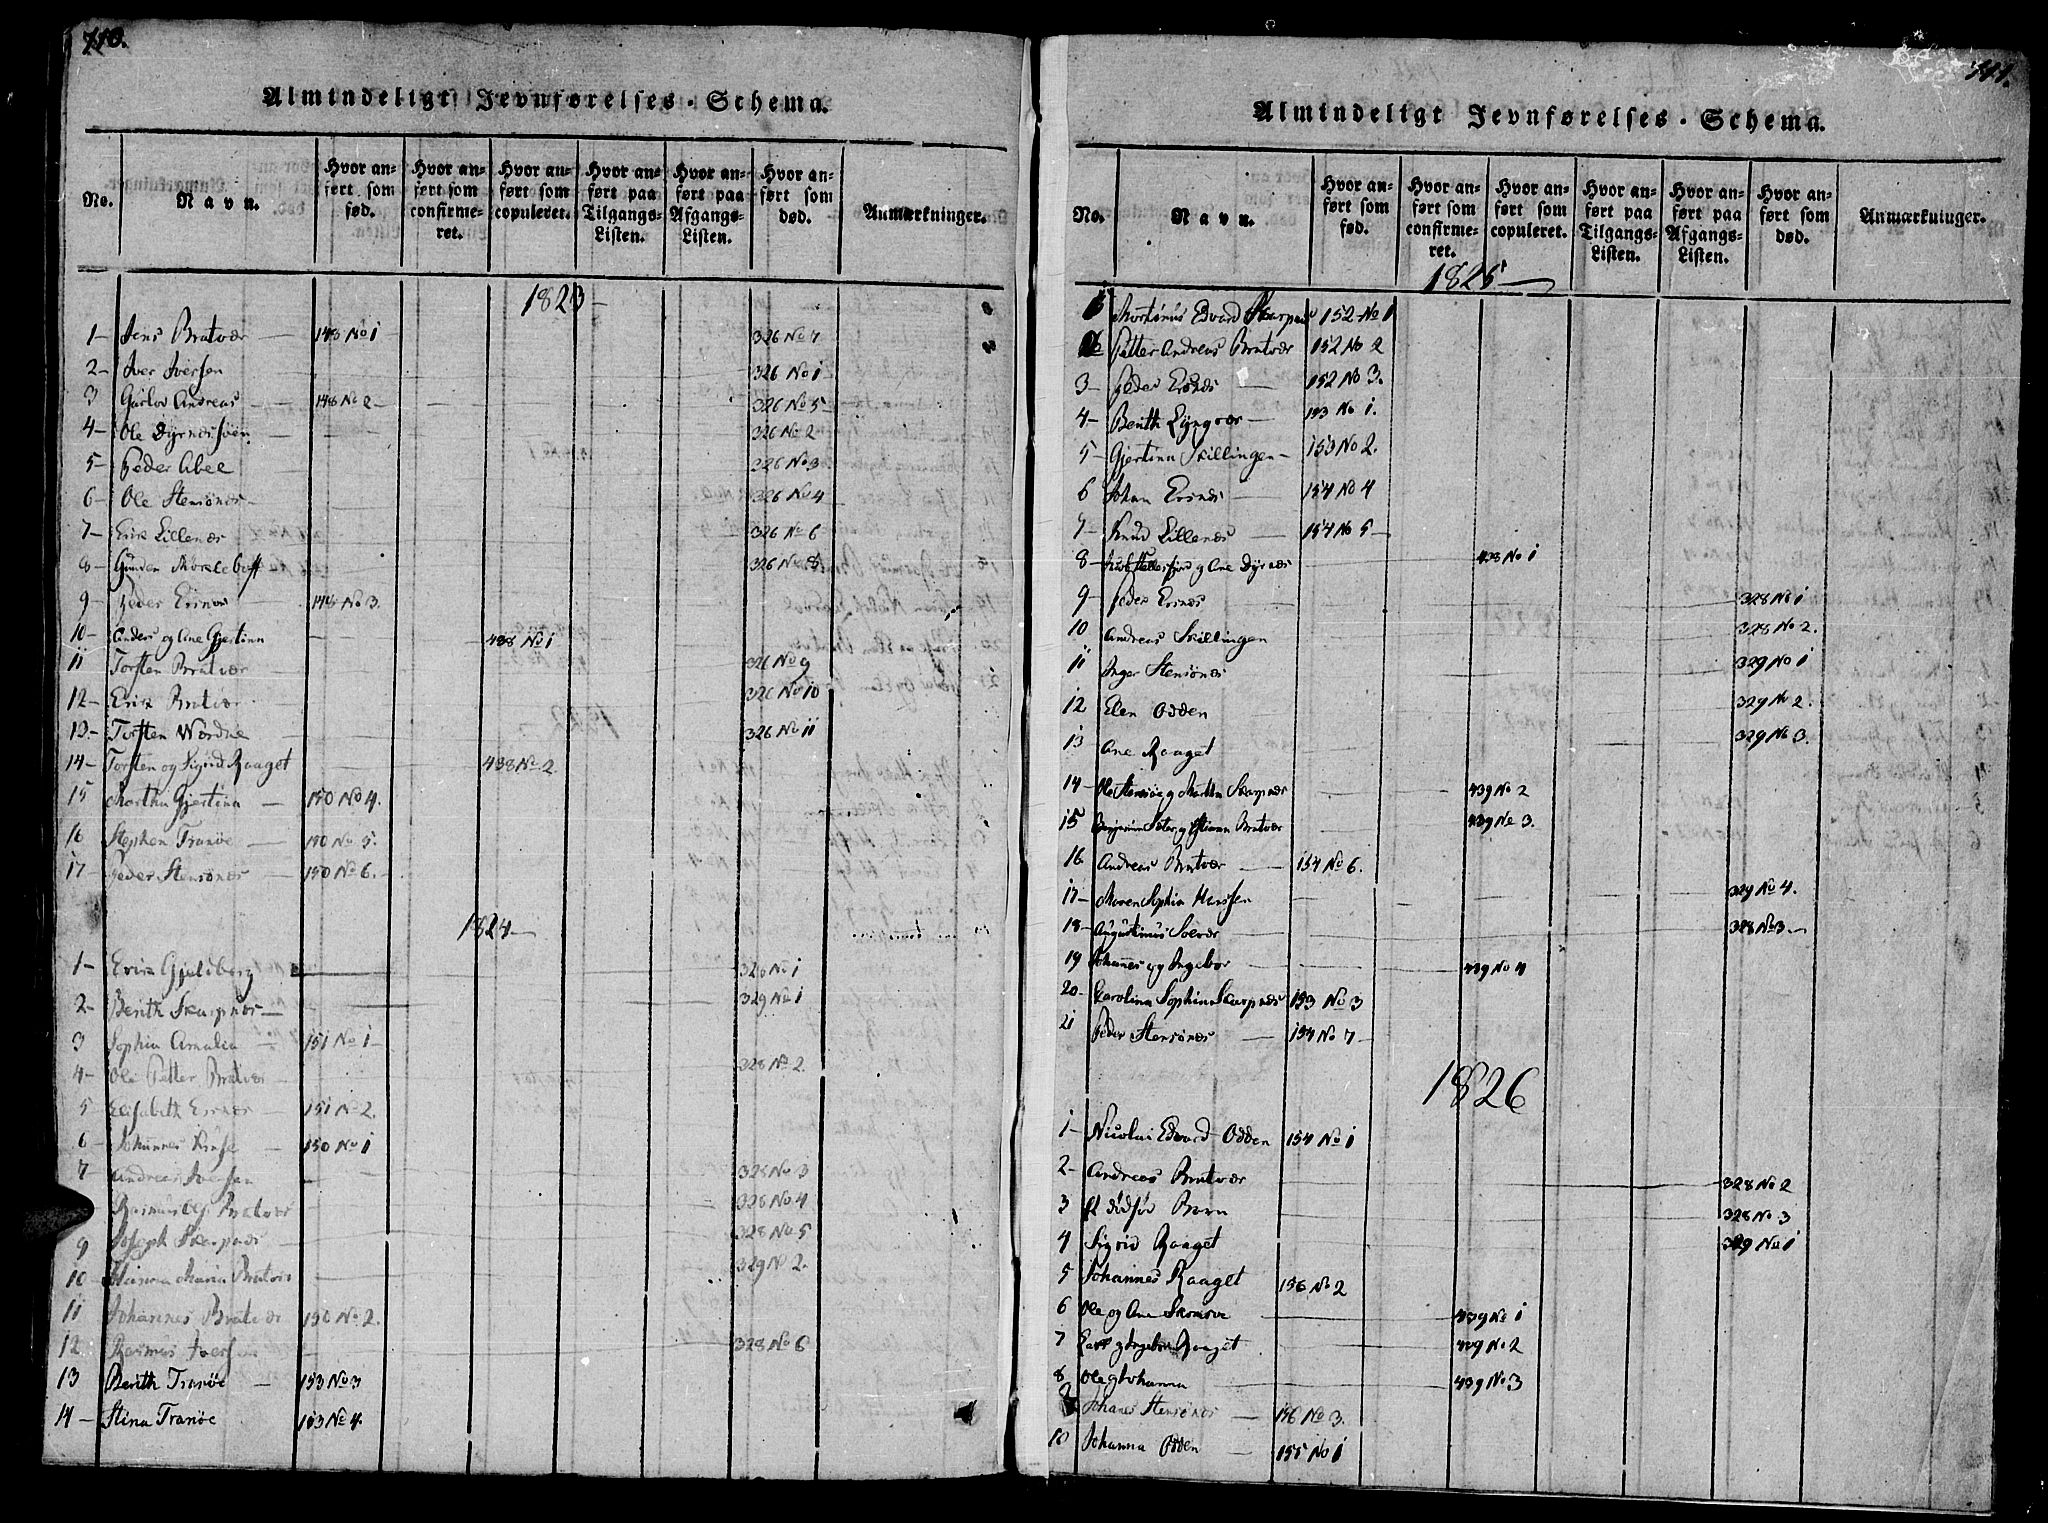 710.
Almindeligt Jevnførelses-Schema.
No.
Navn.
Hvor anført som fød.
Hvor anført som confirmeret.
Hvor anført som copuleret.
Hvor anført paa Tilgangs-Listen.
Hvor anført paa Afgangs-Listen.
Hvor anført som død.
Anmærkninger.
1823
1- Jens Bratvær 148 No 1 326 No 7
2- Iver Iversen 326 No 1
3 Andreas 148 No 2 326 No 5
4- Ole Dyrnæssøen 326 No 2
5- Peder Abel 326 No 3
6- Ole Stensønes 326 No 4
7- Erik Lillenæs 326 No 6
8- 326 No 8
9 Peder Ersnæs 148 No 3.
10- Anders og Ane Gjertina 438 No 1
11 Torsten Bratvær 326 No 9
12- Erik Bratvær 326 No 10
13- Torsten 326 No 11
14- Torsten og Sigrid Raaget 438 No 2
15 Martha Gjertina 150 No 4.
16 Stephen Tranøe 150 No 5.
17- Peder Stensønes 150 No 6.
1824
1- Erik Gjeldberg 326 No 1
2- Berith Skarpnæs 329 No 1
3 Sophia Amalia 151 No 1
4- Ole Petter Bratvær 328 No 2.
5 Elisabeth Ersnæs 151 No 2.
6- Johannes 150 No 1
7 Andreas Iversen 328 No 3
Rasmus Bratvær 328 No 4
9 Joseph Skarpnæs 328 No 5
10- Maria Bratvær 329 No 2.
11 Johannes Bratvær 150 No 2.
12 Rasmus Iversen 328 No 6
13 Berith Tranøe 153 No 3
14- Stina Tranøe 153 No 4.
711.
Almindeligt Jevnførelses-Schema.
No.
Navn.
Hvor anført som fød.
Hvor anført som confirmeret.
Hvor anført som copuleret.
Hvor anført paa Tilgangs-Listen.
Hvor anført paa Afgangs-Listen.
Hvor anført som død.
Anmærkninger.
1825
Mortinus Edvard Skarpnæs 152 No 1
2 Petter Andreas Bratvær 152 No 2
3- Peder Ersnæs 152 No 3.
4- Berith Lyngvær 153 No 1.
5- Gjertina Skillingen 153 No 2.
6 Johan Ersnæs 154 No 4
7- Knud Lillenæs 154 No 5
8- og Ane Dyrnæs 438 No 1
9- Peder Ersnæs 328 No 1
10 Andreas Skillingen 328 No 2.
11 Inger Stensønes 329 No 1
12 Elen Odden 329 No 2.
13 Ane Raaget 329 No 3.
14- Ole Stensøe og Martha Skarpnæs 439 No 2
15 Benjamin og Bratvær 439 No 3.
16 Andreas Bratvær 154 No 6.
17- Maren Sophia Hanssen 329 No 4.
18- Augustinus 328 No 3
19 Johannes og Ingebor 439 No 4
20- Carolina Sophia Skarpnæs 153 No 3
21 Peder Stensønes 154 No 7
1826
1- Nicolai Edvard Odden 154 No 1
2- Andreas Bratvær 328 No 2
3 et dødfød Barn 328 No 3
4 Sigrid Raaget 329 No 1
5 Johannes Raaget 156 No 2
6 Ole og Ane 439 No 1
7 Lars og Ingebor Raaget 439 No 2
8 Ole og Johanna 439 No 3
9 Johanes Stensønes 156 No 3.
10 Johanna Odden 155 No 1